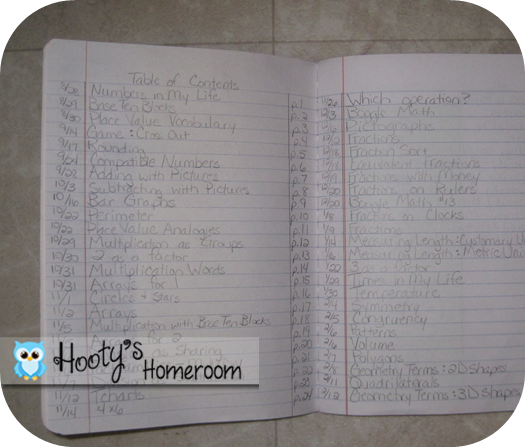 Table of Contents
8/28 Numbers in My Life p.1
8/29 Base Ten Blocks p.2
8/30 Place Value Vocabulary p.3
9/14 Game: Cross Out p.4
9/17 Rounding p.5
9/24 Compatible Numbers p.6
9/28 Adding with Pictures p.7
10/3 Subtracting with Pictures p.8
10/16 Bar Graphs p.9
10/22 Perimeter p.10
10/22 Place Value Analogies p.11
10/29 Multiplication as Groups p.12
10/30 2 as a factor p.13
10/31 Multiplication Words p.14
10/31 Arrays for 1 p.15
11/1 Circles + Stars p.16
11/2 Arrays p.17
11/5 Multiplication with Base Ten Blocks p.18
for 2 p.19
as Sharing p.20
p.21
p.22
11/12 Tcharts p.23
11/14 4 x 6 p.24
11/26 Which operation?
12/3 Boggle Math
Pictographs
Fractions
Fraction Sort
Equivalent Fractions
Fractions with Money
Fractions on Rulers
Boggle Math #13
1/8 Fractions on Clocks
1/9 Fractions
1/14 Measuring Length: Customary U
Measuring Length: Metric Uni
1/22 3 as a factor
1/29 Times in My Life
1/30 Temperature
Symmetry
2/5 Congruency
Patterns
2/6 Volume
2/7 Polygons
2/8 Geometry Terms: 2D shapes
2/11 Quadrilaterals
2/12 Geometry Terms: 3D shapes
Hooty's
Homeroom